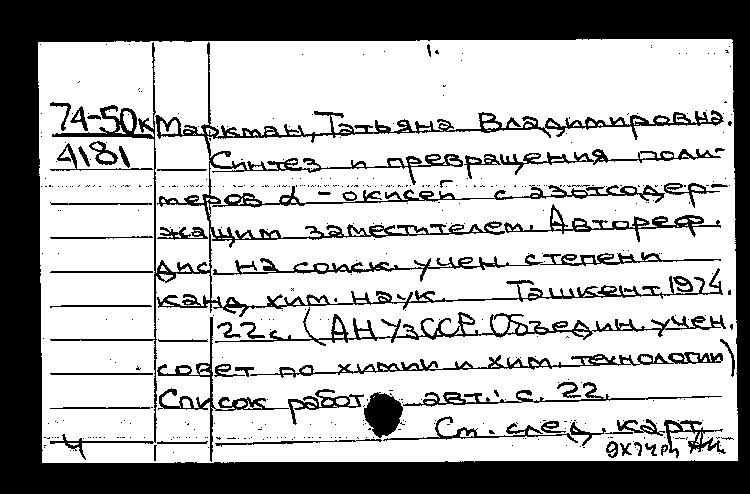 1.
74-50к Маркман, Татьяна Владимировна.
4181 Синтез и превращения поли-
меров α-окисей с азотсодер-
жащим заместителем. Автореф.
дис. на соиск. учен. степени
канд. хим. наук. Ташкент, 1974.
22 с. (АН УзССР. Объедин. учен.
совет по химии и хим. технологии)
Список работ авт.: с. 22.
См. след. карт.
4